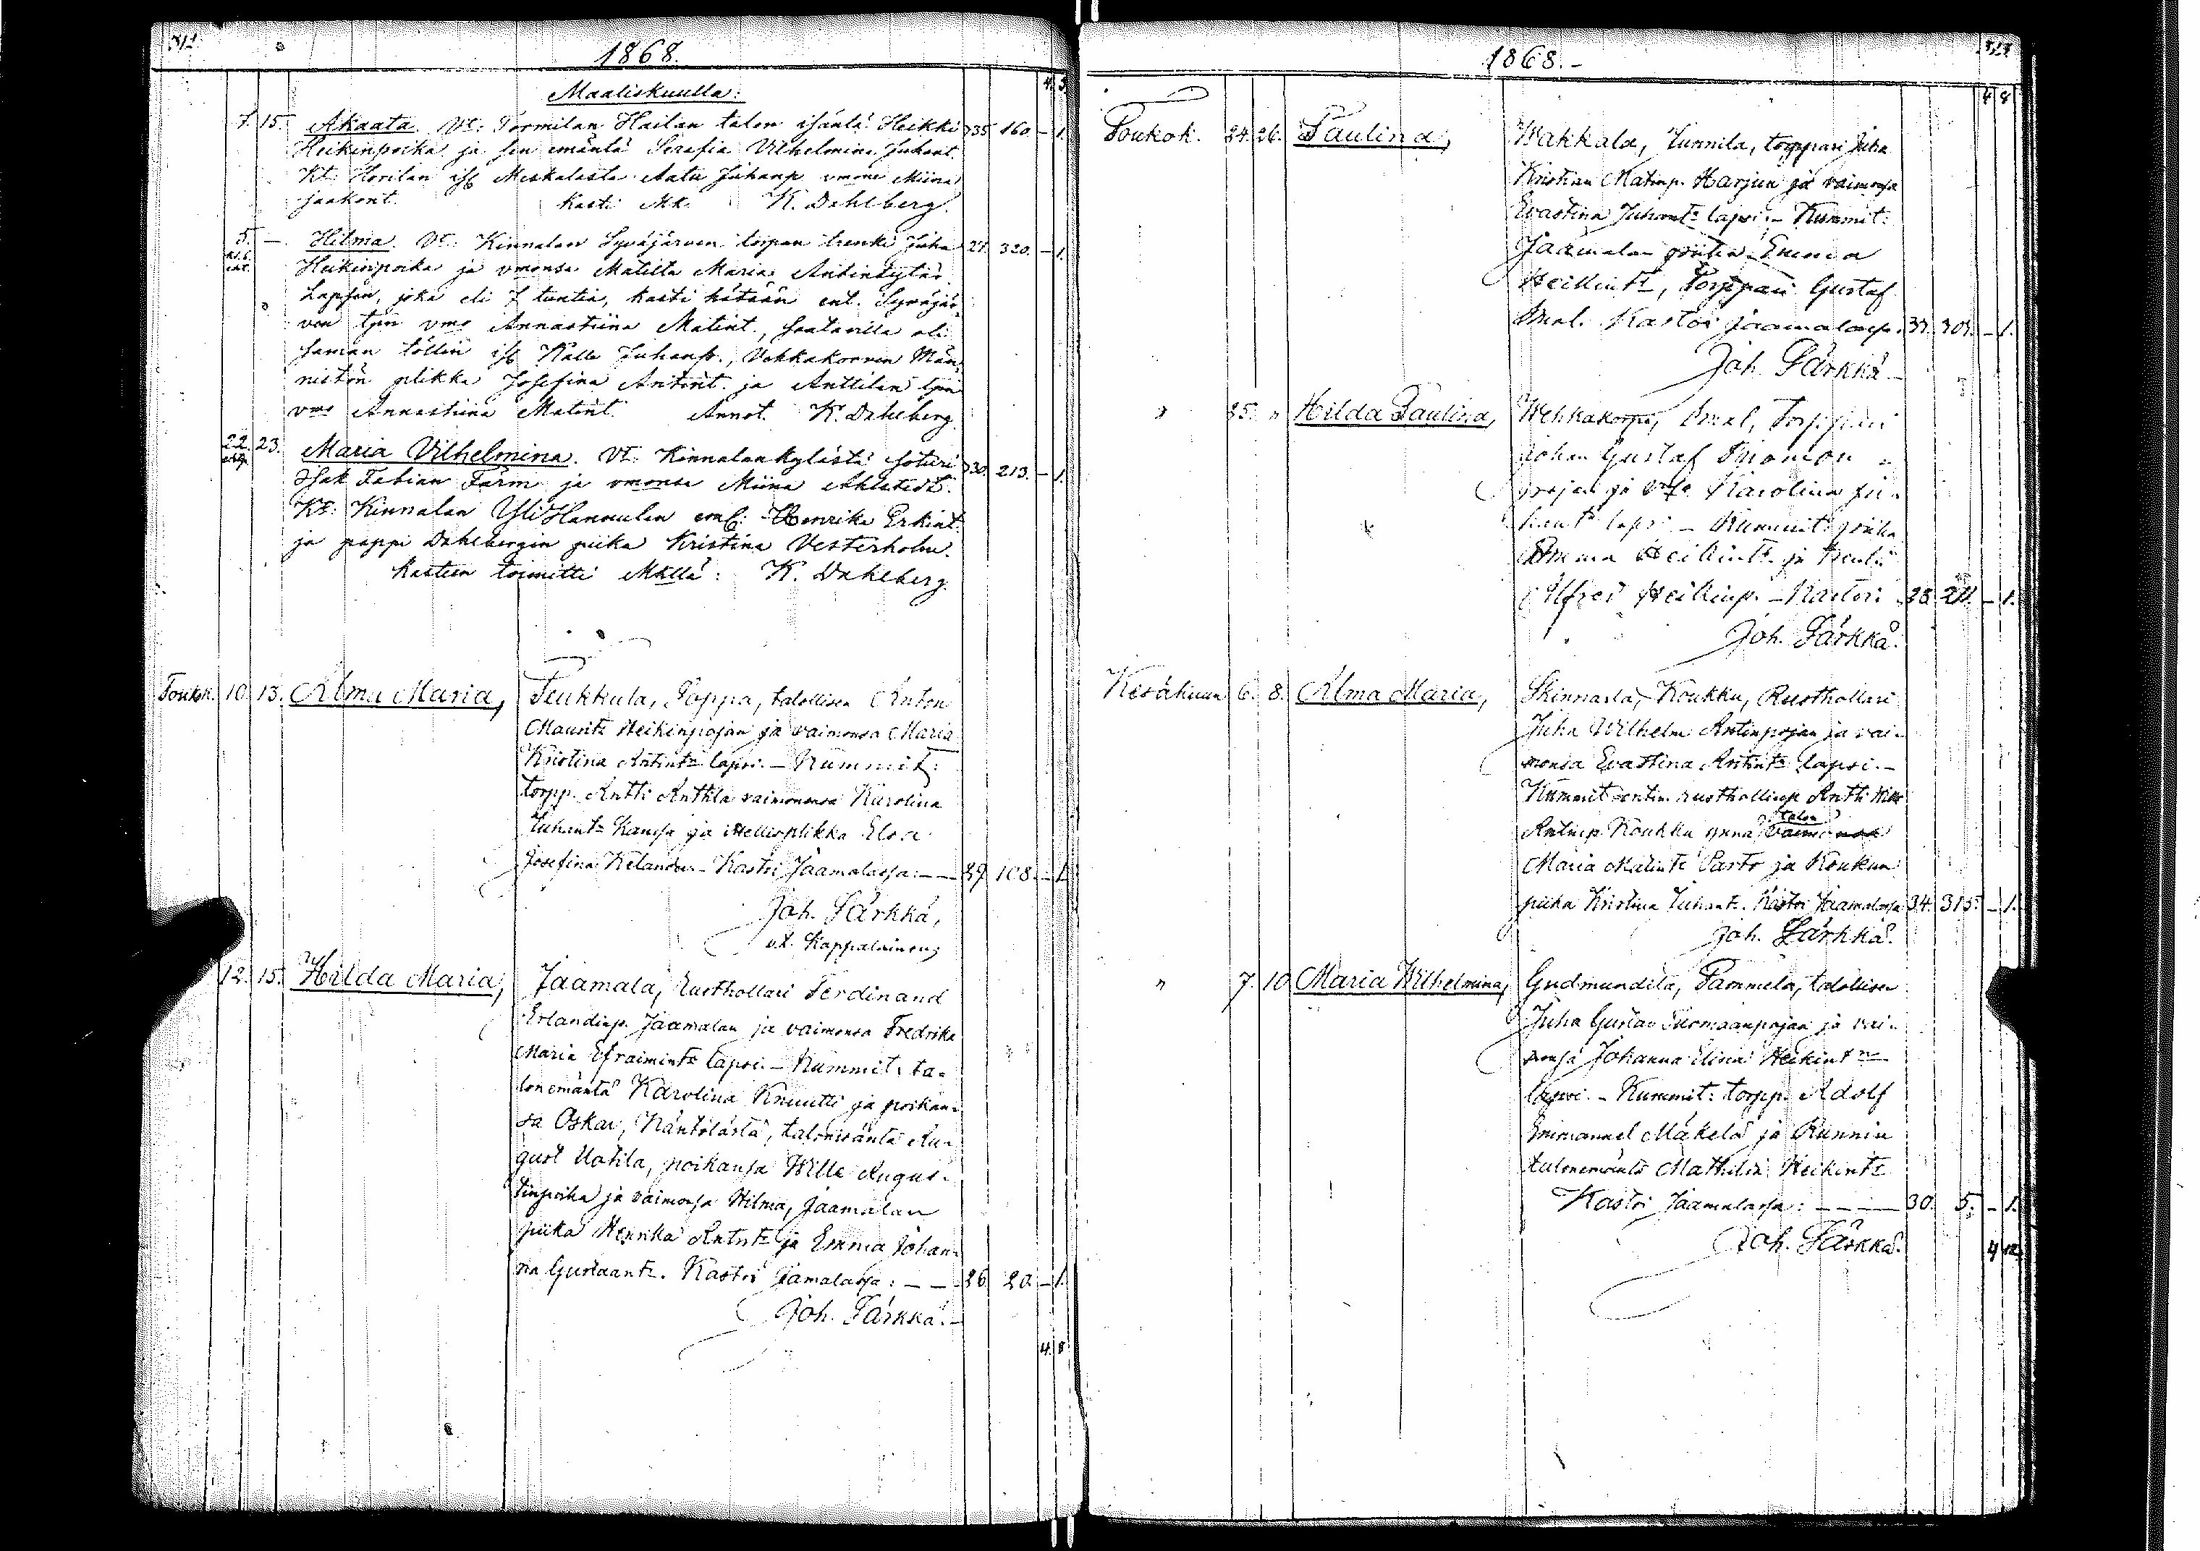 312.
1868.
Maaliskuulla:
4. 3.
7. 15. Akaata. Vt: Tormilan Hailan talon isäntä Heikki 35. 160. – 1.
Heikinpoika ja sen emäntä Serafia Vilhelmina Juhant.
Kt: Horilan Meskalasta Aatu Juhanp vmone Miina
Jaakont. Kasti Mk. K. Dahlberg.
5. – Hilma. Vt: Kinnalan Syväjärven torpan trenki Juha 27. 320. – 1.
Heikinpoika ja vmonsa Matilta Maria Antintytär
Lapsen, joka eli 7 tuntia, kasti hätään ent. Syväjär-
ven tpn vmo Annastiina Matint., saatavilla oli
saman töllin Kalle Juhanp., Vehkakorven Män-
nistön plikka Josefina Antint. ja Anttilan tpn
vmo Annastiina Matint. Annot. K. Dahlberg.
22. 23. Maria Vilhelmina. Vt: Kinnalankylästä soturi 30. 213. – 1.
Isak Fabian Färm ja vmonsa Miina Ahlstedt.
Kt: Kinnalan YliHannulan Henrika Erkint.
ja pappi Dahlbergin piika Kristina Vesterholm.
Kasteen toimitti Mkllä: K. Dahlberg.
Toukok. 10. 13. Alma Maria, Teukkula, Pappa, talollisen Anton
Mauritz Heikinpojan ja vaimonsa Maria
Kristina Antintr lapsi. – Kummit:
torpp. Antti Anttila vaimonensa Karolina
Juhantr kanssa ja itsellisplikka Elsa
Josefina Kelander. – Kastoi Jaamalassa: – – 39. 108. – 1.
Joh. Särkkä,
v.t. Kappalainen;
12. 15. Hilda Maria, Jaamala, Rusthollari Ferdinand
Erlandinp. Jaamalan ja vaimonsa Fredrika
Maria Efraimintr lapsi. – Kummit: ta-
lonemäntä Karolina Knuutti ja poikan-
sa Oskar, Näntölästä, talonisäntä Au-
gust Uotila, poikansa Wille Augus-
tinpoika ja vaimonsa Hilma, Jaamalan
piika Henrika Antintr ja Emma Johan-
na Gustaantr. Kastoi Jaamalassa: – – – 26. 20. – 1.
Joh. Särkkä. –
4. 8.
313.
1868. –
4 8
Toukok. 24. 26. Paulina, Wakkala, Junnila, torppari Juha
Kristian Matinp. Harjun ja vaimonsa
Evastina Juhantr lapsi. – Kummit:
Jaamalan piika Emma
Heikintr, Torppari Gustaf
Kastoi Jaamalassa. 37. 307. – 1.
Joh. Särkkä –
" 25. " Hilda Paulina, Wehkakorpi, Torppari
Johan Gustaf Simon
pojan ja Karolina Ju-
hantr lapsi – Kummit: piika
Emma Heikintr ja
Alfred Heikinp. – Kastoi 28. 211. – 1.
Joh. Särkkä.
Kesäkuun 6. 8. Alma Maria, Skinnarla, Koukku, Rusthollari
Juha Wilhelm Antinpojan ja vai-
monsa Evastina Antintr lapsi. –
Kummit: entin. rusthollinp Antti
talon
Antinp Koukku ynnä vaimonsa
Maria Matintr Sarto ja Koukun
piika Kristina Juhantr. Kastoi Jaamalassa 34. 315. – 1.
Joh. Särkkä.
" 7. 10. Maria Wilhelmina, Gudmundila, Pammela, talollisen
Juha Gustav Tuomaanpojan ja vai-
monsa Johanna Elina Heikintr
lapsi. – Kummit: torpp. Adolf
Emmanuel Mäkelä ja Runnin
talonemäntä Mathilda Heikintr
Kastoi Jaamalassa: – – – – 30. 5. – 1.
Joh. Särkkä.
4 12